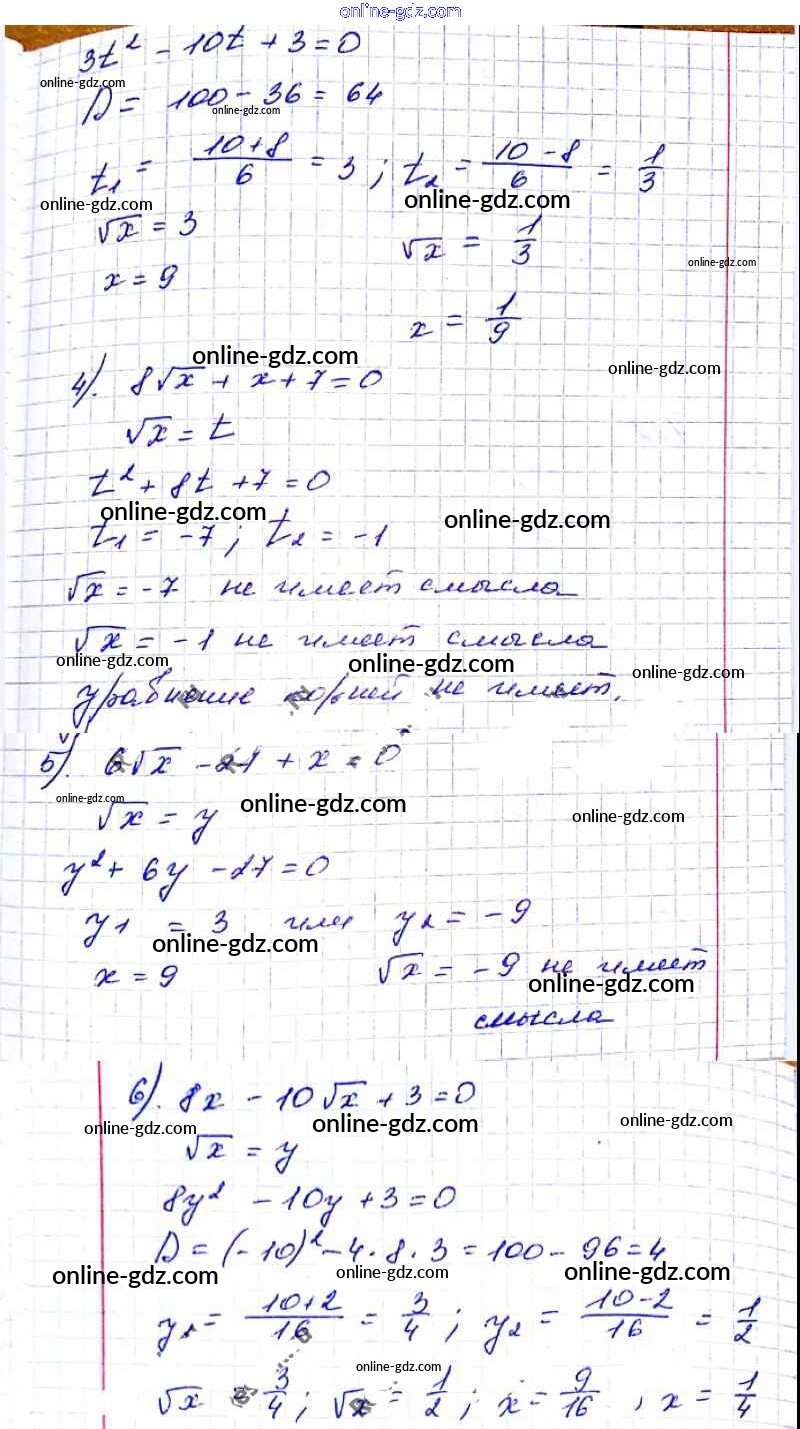 online-gdz.com
3t² - 10t + 3 = 0
online-gdz.com
D = 100 - 36 = 64
online-gdz.com
t₁ = (10+8)/6 = 3 ; t₂ = (10-8)/6 = 1/3
online-gdz.com online-gdz.com
√x = 3 √x = 1/3
online-gdz.com
x = 9
x = 1/9
online-gdz.com online-gdz.com
4). 8√x + x + 7 = 0
√x = t
t² + 8t + 7 = 0
online-gdz.com online-gdz.com
t₁ = -7 ; t₂ = -1
√x = -7 не имеет смысла
√x = -1 не имеет смысла
online-gdz.com online-gdz.com online-gdz.com
уравнение корней не имеет.
5). 6√x - 27 + x = 0
online-gdz.com online-gdz.com online-gdz.com
√x = y
y² + 6y - 27 = 0
y₁ = 3 или y₂ = -9
online-gdz.com
x = 9 √x = -9 не имеет
online-gdz.com
смысла
6). 8x - 10√x + 3 = 0
online-gdz.com online-gdz.com online-gdz.com
√x = y
8y² - 10y + 3 = 0
D = (-10)² - 4·8·3 = 100 - 96 = 4
online-gdz.com online-gdz.com online-gdz.com
y₁ = (10+2)/16 = 3/4 ; y₂ = (10-2)/16 = 1/2
online-gdz.com
√x = 3/4 ; √x = 1/2 ; x = 9/16 , x = 1/4